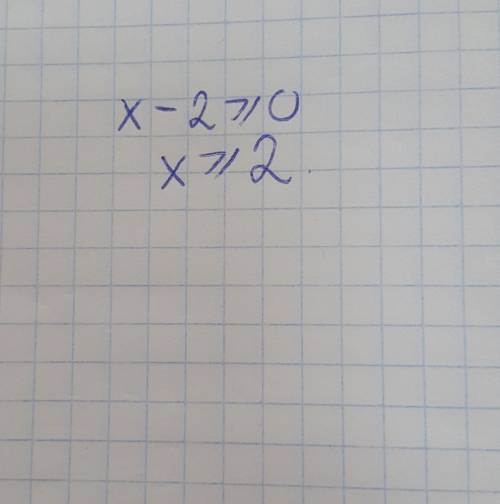 x - 2 ⩾ 0
x ⩾ 2.